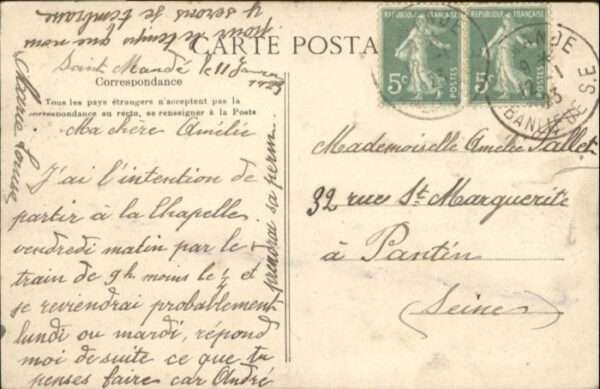 CARTE POSTA
Correspondance
Tous les pays étrangers n'acceptent pas la
correspondance au recto, se renseigner à la Poste
Saint Mandé le 11 Janvier
Ma chère Amélie
J'ai l'intention de
partir à la Chapelle
vendredi matin par le
train de 9h moins le ¼ et
je reviendrai probablement
lundi ou mardi, répond
moi de suite ce que tu
penses faire car André
prendrai sa perm.
pour le temps que nous
y serons je t'embrasse
Louise
REPUBLIQUE FRANÇAISE
5c
POSTES
REPUBLIQUE FRANÇAISE
5c
POSTES
BANLIEUE S.E
Mademoiselle Amélie Pallet
32 rue St Marguerite
à Pantin
(Seine)